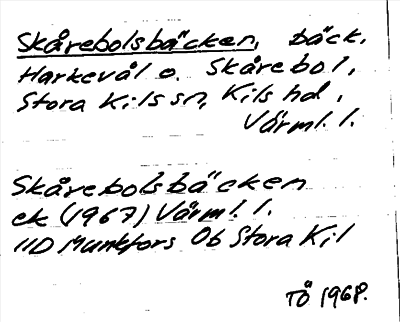 Skårebolsbäcken, bäck,
Harkevål o. Skårebol,
Stora Kils sn, Kils hd,
Värml. l.
Skårebolsbäcken
ek (1967) Värml. l.
11D Munkfors 0b Stora Kil
TÖ 1968.